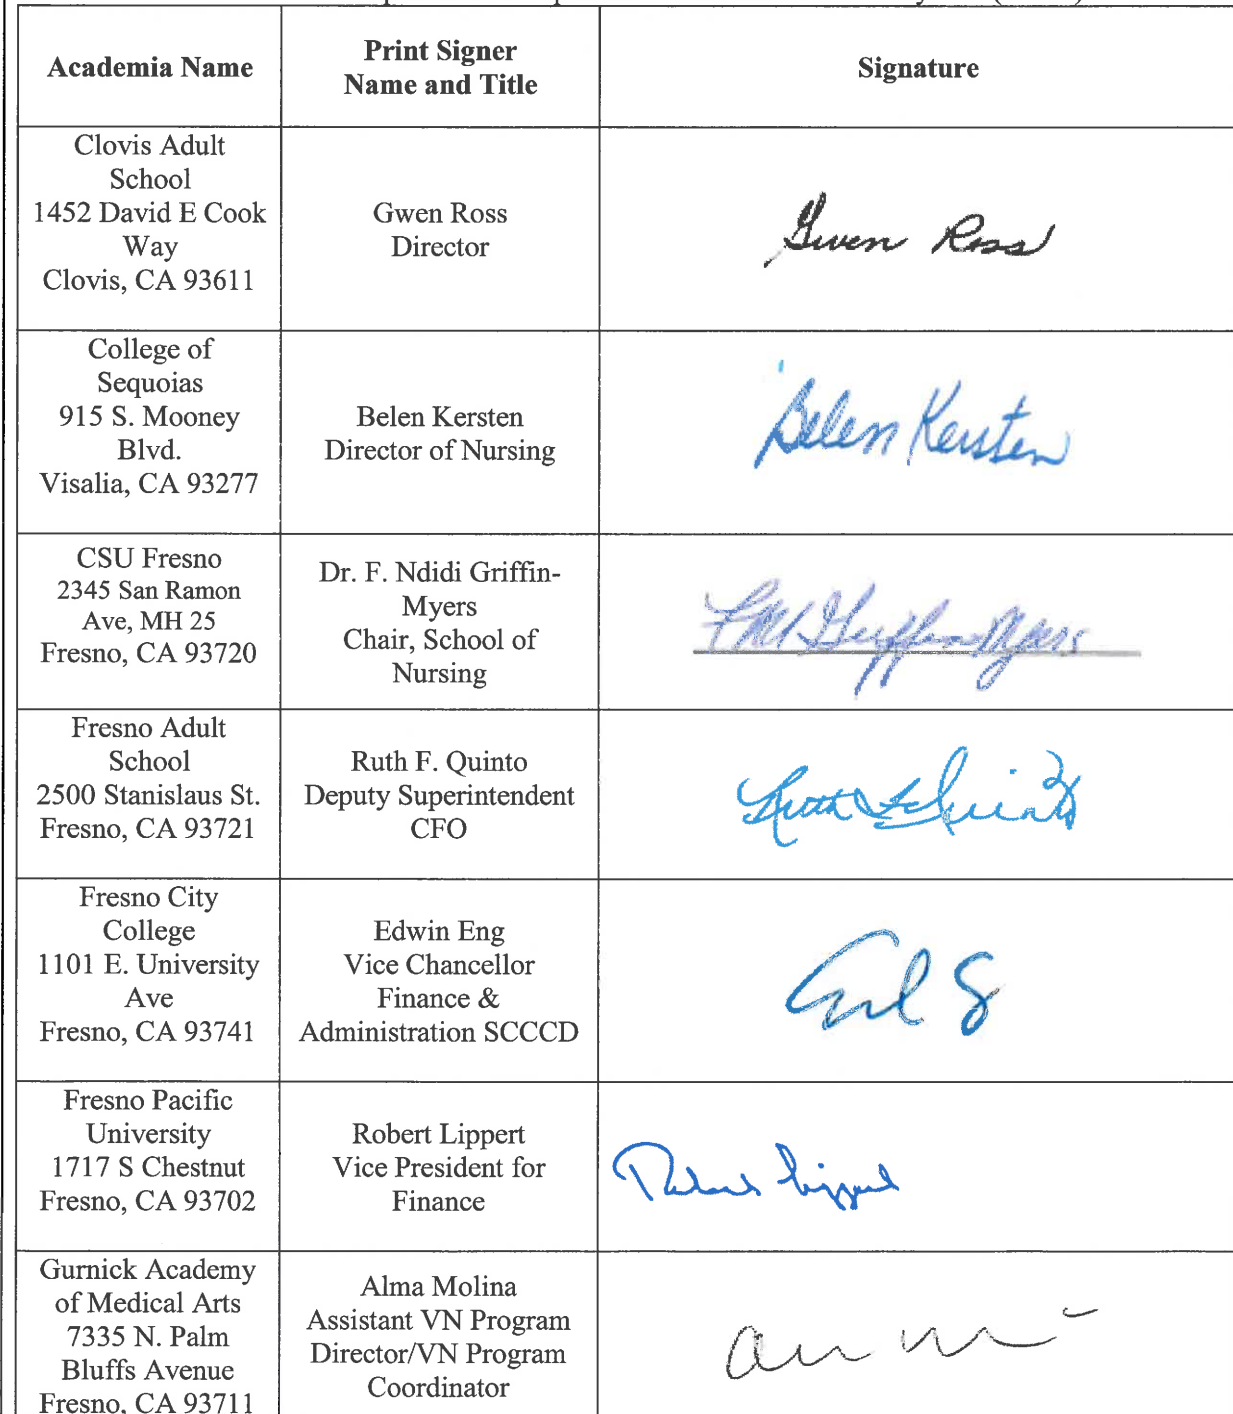 Academia Name
Print Signer
Name and Title
Signature
Clovis Adult
School
1452 David E Cook
Way
Clovis, CA 93611
Gwen Ross
Director
Gwen Ross
College of
Sequoias
915 S. Mooney
Blvd.
Visalia, CA 93277
Belen Kersten
Director of Nursing
Belen Kersten
CSU Fresno
2345 San Ramon
Ave, MH 25
Fresno, CA 93720
Dr. F. Ndidi Griffin-
Myers
Chair, School of
Nursing
Griffin-Myers
Fresno Adult
School
2500 Stanislaus St.
Fresno, CA 93721
Ruth F. Quinto
Deputy Superintendent
CFO
Ruth F Quinto
Fresno City
College
1101 E. University
Ave
Fresno, CA 93741
Edwin Eng
Vice Chancellor
Finance &
Administration SCCCD
Fresno Pacific
University
1717 S Chestnut
Fresno, CA 93702
Robert Lippert
Vice President for
Finance
Robert Lippert
Gurnick Academy
of Medical Arts
7335 N. Palm
Bluffs Avenue
Fresno, CA 93711
Alma Molina
Assistant VN Program
Director/VN Program
Coordinator